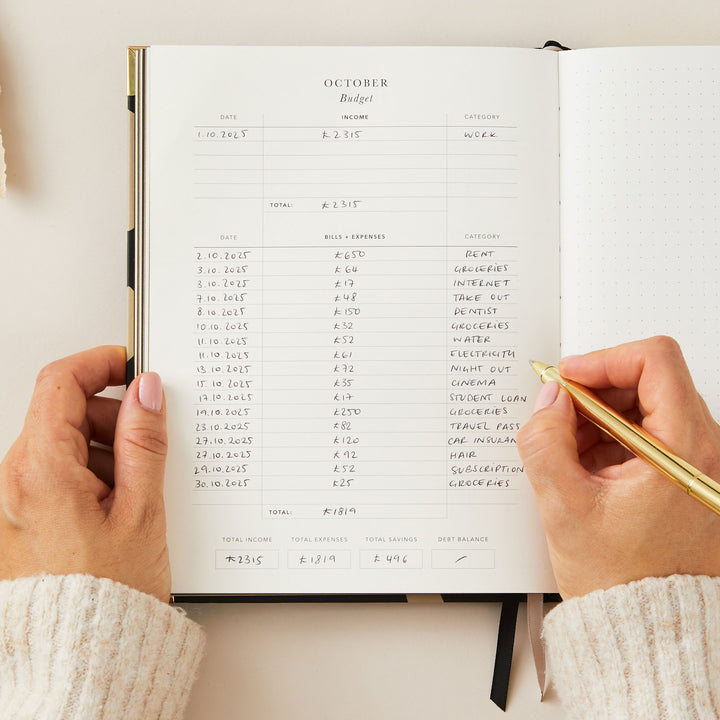 OCTOBER
Budget
DATE INCOME CATEGORY
1.10.2025 £2315 WORK
TOTAL: £2315
DATE BILLS + EXPENSES CATEGORY
2.10.2025 £650 RENT
3.10.2025 £64 GROCERIES
3.10.2025 £17 INTERNET
7.10.2025 £48 TAKE OUT
8.10.2025 £150 DENTIST
10.10.2025 £32 GROCERIES
11.10.2025 £52 WATER
11.10.2025 £61 ELECTRICITY
13.10.2025 £72 NIGHT OUT
15.10.2025 £35 CINEMA
17.10.2025 £17 STUDENT LOAN
19.10.2025 £250 GROCERIES
23.10.2025 £82 TRAVEL PASS
27.10.2025 £120 CAR INSURAN
27.10.2025 £92 HAIR
29.10.2025 £52 SUBSCRIPTION
30.10.2025 £25 GROCERIES
TOTAL: £1819
TOTAL INCOME TOTAL EXPENSES TOTAL SAVINGS DEBT BALANCE
£2315 £1819 £496 /